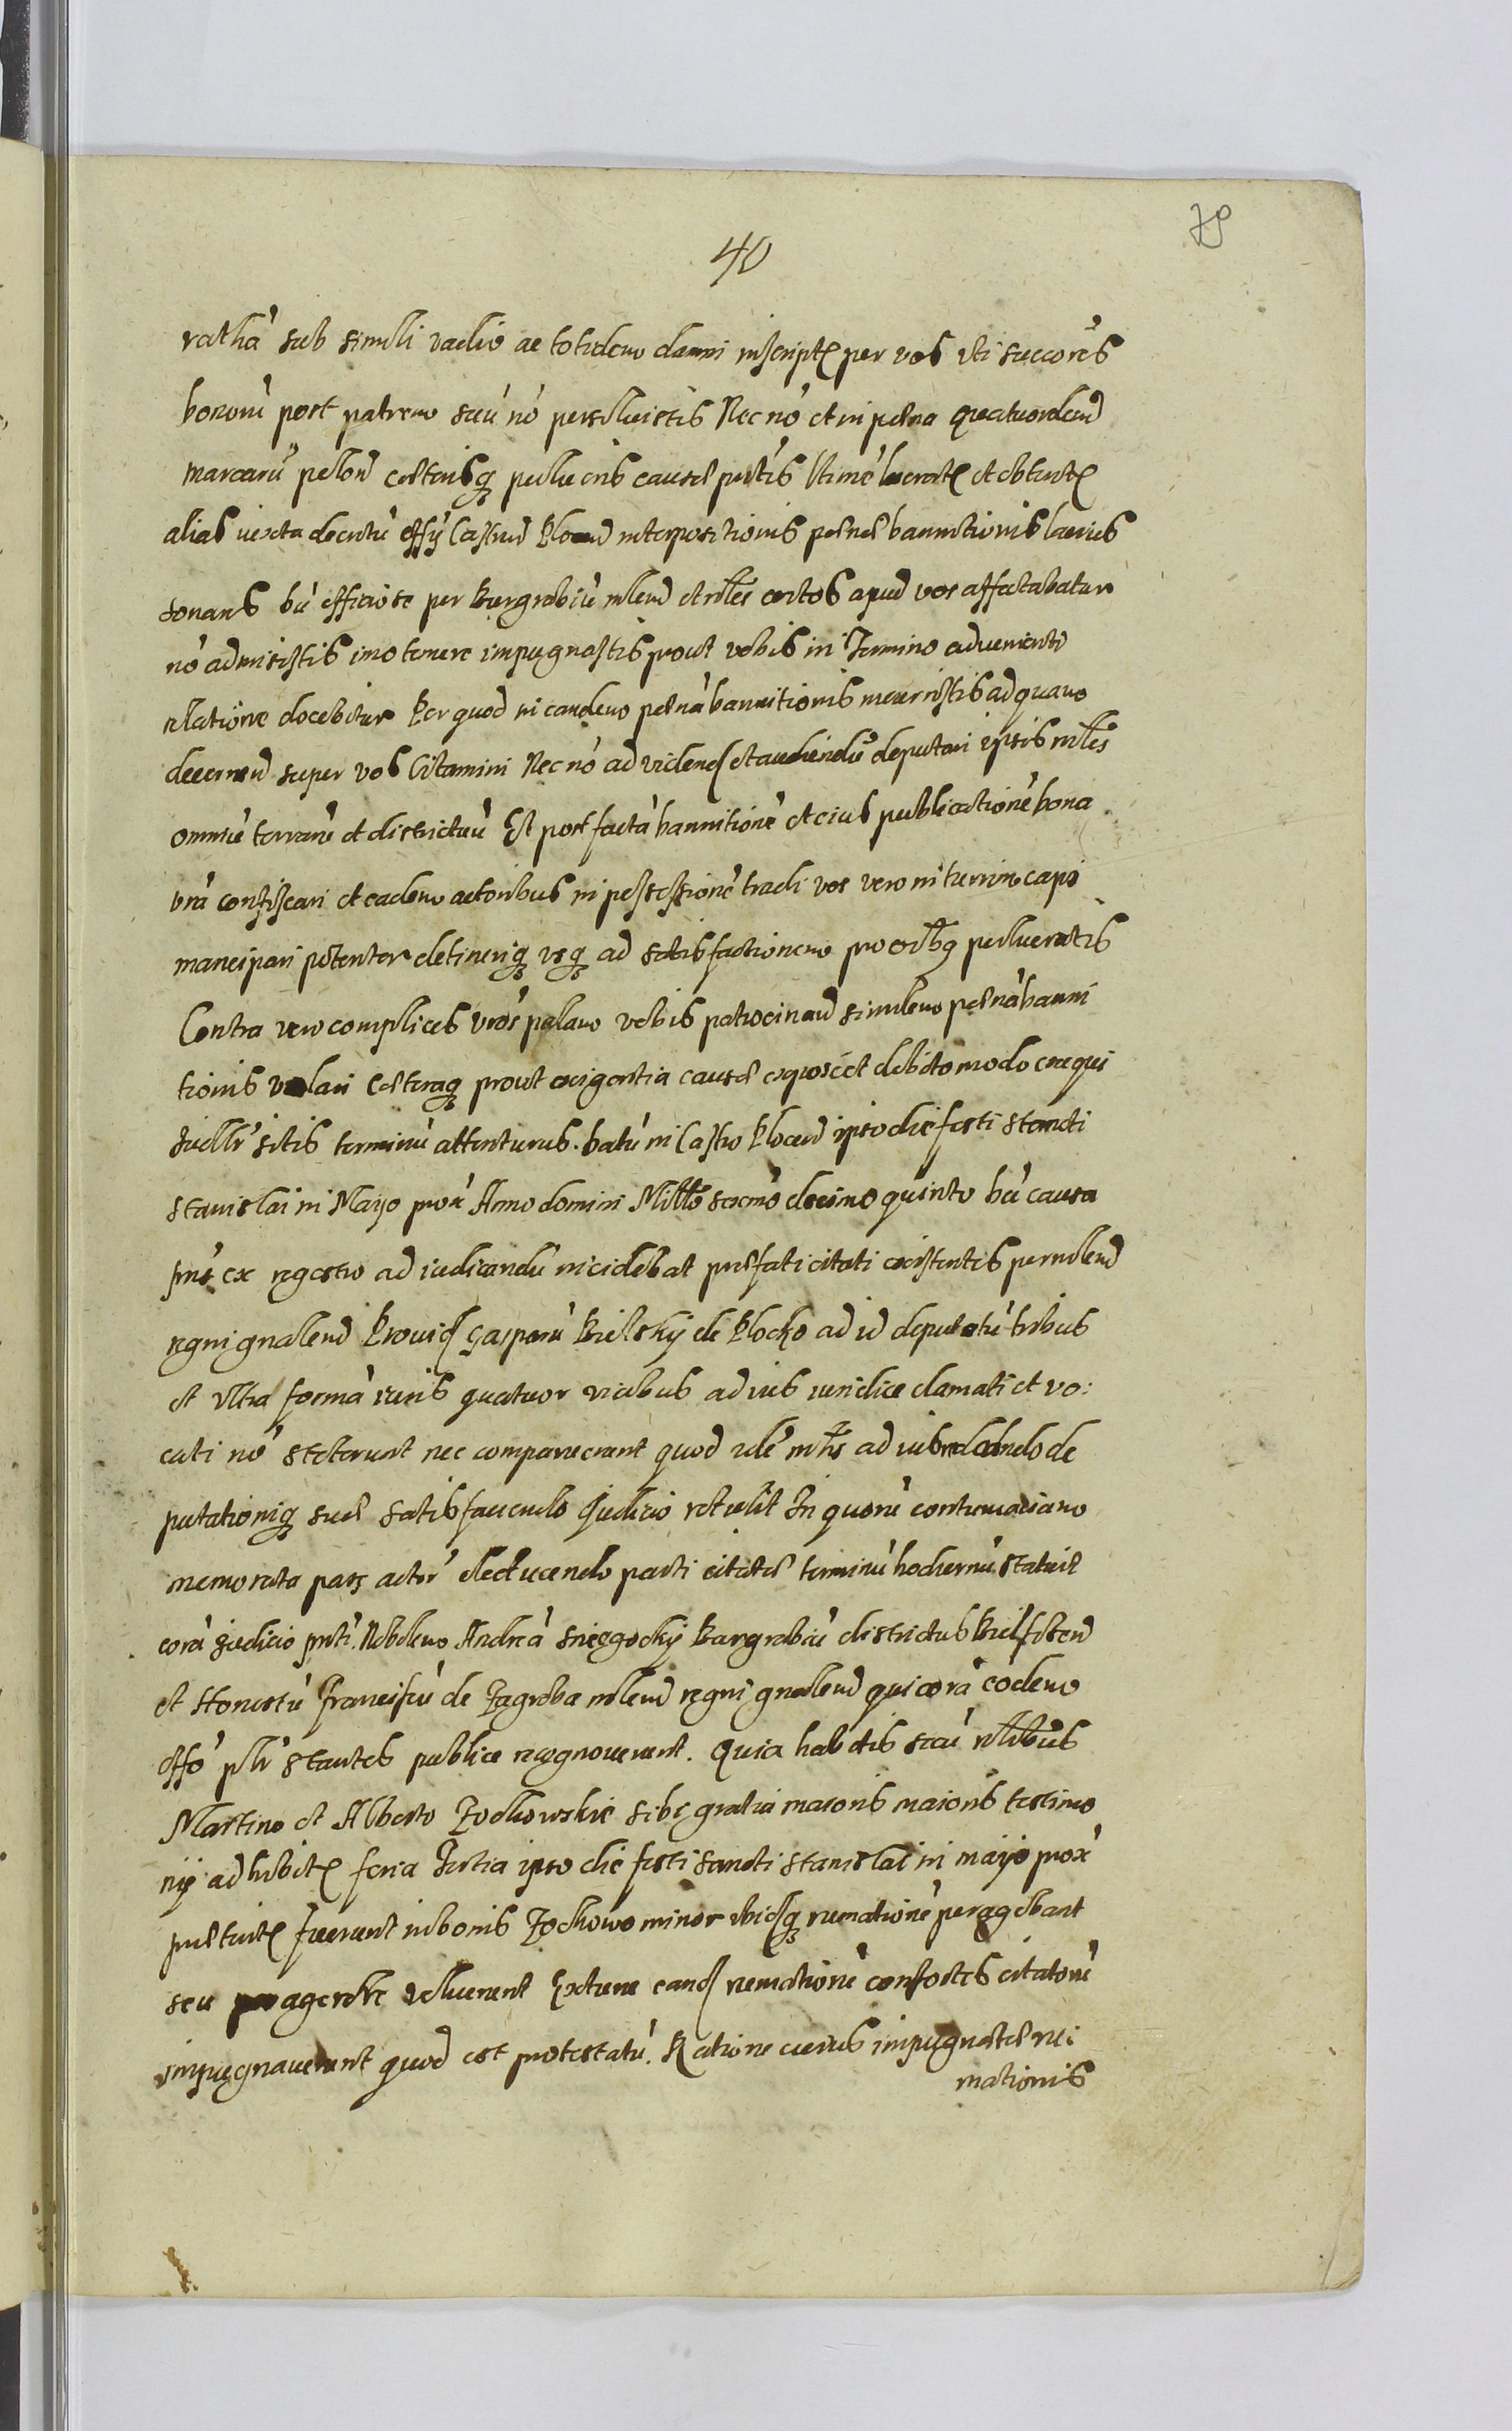 79
40
rathá sub simili vadio ac totidem damni inscriptę per vos vti succorẽs
bonorú post patrem suú nó persolvistis Nec nó et in pęna quatuordecim
marcarú polon̄ cęterisq̨ pulueris causę pństis ltimè lucratę et obtentę
alias iuxta decretú offÿ Castren̄ Plocen̄ interpositionis pęnę bannitionis
sonans bú officiose per Burgrabiú mlem̄ et nbles certos apud vos affectabatur
nó admisistis imo temere impugnastis prout vobis in Termino adveniente
relatione docebitur Per quod in eandem pęná bannitionis incurristis ad quam
decernen̄ super vos Citamini Nec nó ad videnḍ et audiendú deputari ipsis mlẽs
omniú terrarú et districtuú Et post factá bannitioné et eius publicationé bona
vrá confiscari et eadem actoribus in possessioné tradi vos vero in turrim capi
mancipari potenter detineriq̨ vsq̨ ad satisfactionem pro oribq̨ pulueratis
Contra vero complices vrós palam vobis patrocinan̄ similem pęná banni
tionis valari Cęteraq̨ prout exigentia causę exposcet debito modo exequi
Iudlr̃ sitis terminú attenturus. batú in Castro Plocen̄ ipso die festi Sancti
Stanislai in Mayo prox̃ Anno domini Millo sexcmo decimo quinto bú causa
pns ex regestro ad iudicandú incidebat pręfati citati existentes per mlem̄
regni gnalem̄ Provid̄ Gasparú Bielskÿ de Plocko ad id deputatú tribus
et vltra formá iuris quatuor vicibus ad ius iuridice clamati et vo:
cati nó steterunt nec comparuerunt quod idé mlris ad ius reddendo de
putationiq̨ suę satisfaciendo Judicio retulit In quorú contumaciam
memorata pars actor̃ deducendo parti citatę terminú hodiernú statuit
corá Judicio pnti. Nobilem Andreá Sniegockÿ Burgrabiú districtus Bielscen̄
et Honestú Franciscú de Zagroba mlem̄ regni gnalem̄ qui corá eodem
offo plr̃ stantes publice recognoverunt. Quia habitis secú nbilibus
Martino et Alberto Zochowskie sibi gratia maioris maioris testimo
nÿ adhibitę feria Tertia ipso die festi Sancti Stanislai in mayo prox̃
pręteritę fuerunt in bonis Zochowo minor ibidq̨ rumationé peragebant
seu peragere voluerunt extunc eand̄ rumationé consortes citatorú
impugnaverunt quod est protestatú. Ratione cuius impugnatę ru
mationis